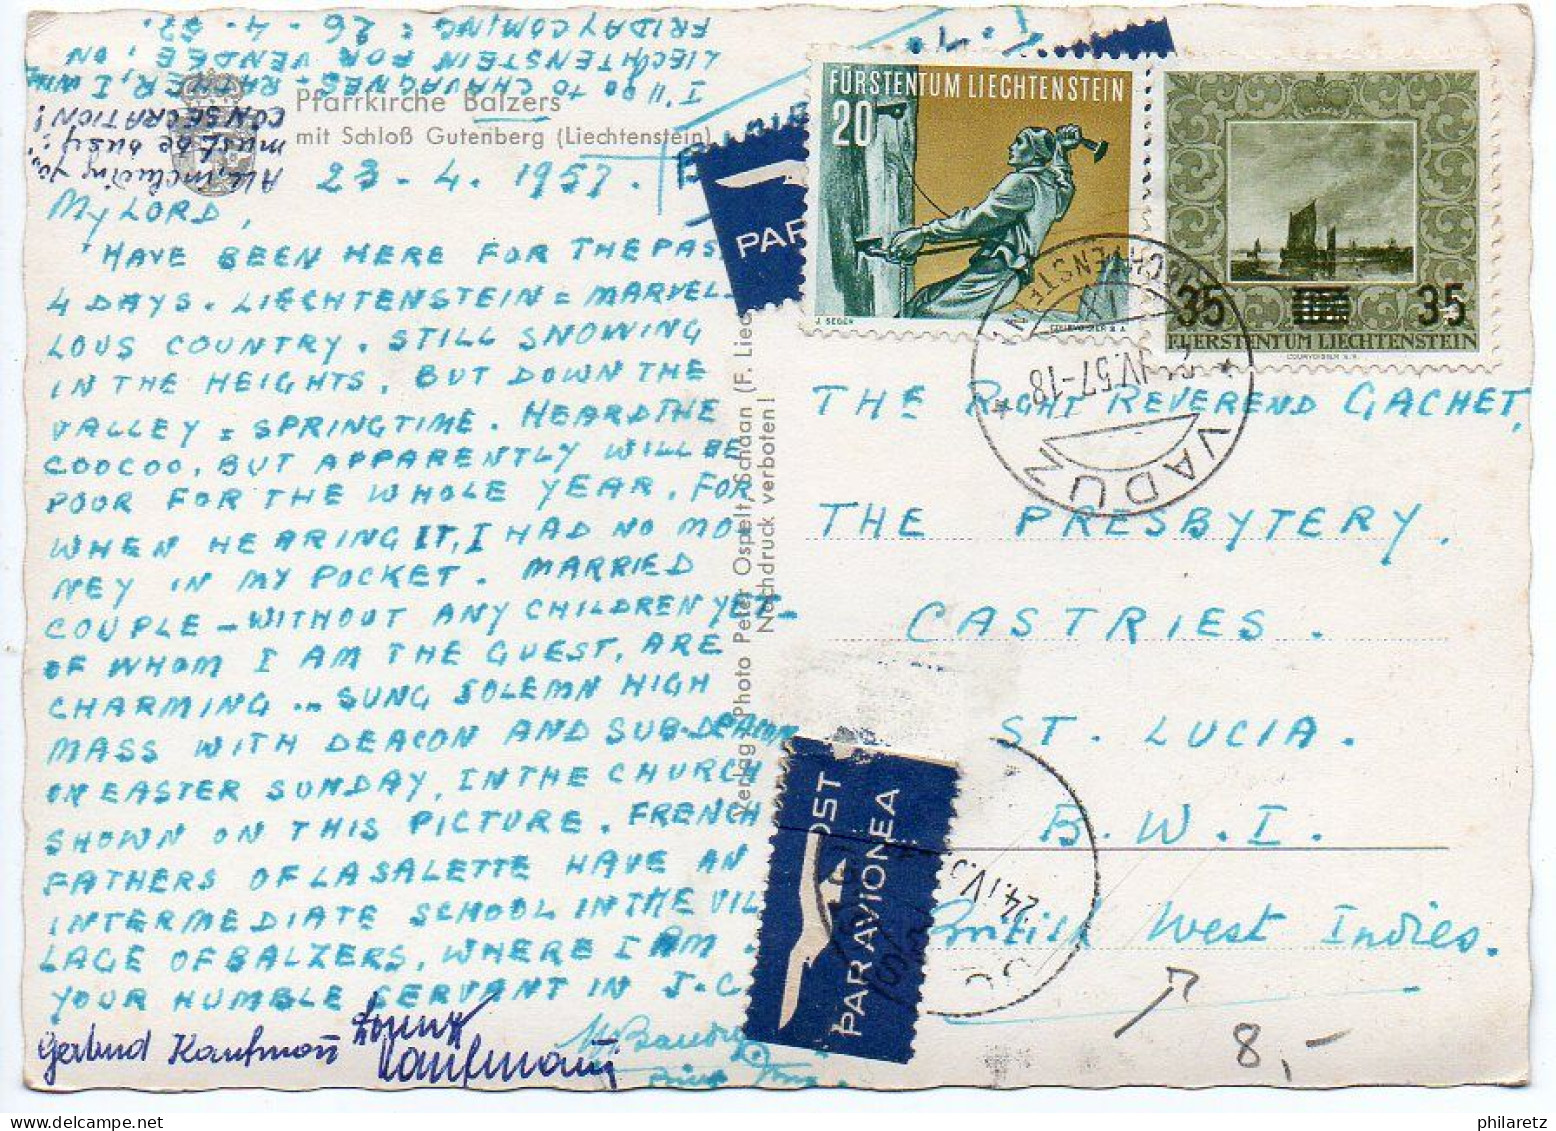 I'll go to CHAVAGNES = RATHER, I WH
LIECHTENSTEIN FOR VENDEE, ON
FRIDAY COMING = 26 - 4 - 57.
All, including yo
must be busy:
CONSECRATION!
Pfarrkirche Balzers
mit Schloß Gutenberg (Liechtenstein)
23 - 4. 1957.
My LORD,
HAVE BEEN HERE FOR THE PAS
4 DAYS. LIECHTENSTEIN = MARVEL-
LOUS COUNTRY. STILL SNOWING
IN THE HEIGHTS, BUT DOWN THE
VALLEY = SPRINGTIME. HEARD THE
COOCOO, BUT APPARENTLY WILL BE
POOR FOR THE WHOLE YEAR, FOR
WHEN HEARING IT, I HAD NO MO
NEY IN MY POCKET. MARRIED
COUPLE - WITHOUT ANY CHILDREN YET -
OF WHOM I AM THE GUEST, ARE
CHARMING .. SUNG SOLEMN HIGH
MASS WITH DEACON AND SUB-DEACON
ON EASTER SUNDAY, IN THE CHURCH
SHOWN ON THIS PICTURE. FRENCH
FATHERS OF LA SALETTE HAVE AN
INTERMEDIATE SCHOOL IN THE VIL
LAGE OF BALZERS, WHERE I AM.
YOUR HUMBLE SERVANT IN J.C.
Gertrud Kaufmann
Kaufmann
Verlag Photo Peter Ospelt, Schaan (F. Liec
Nachdruck verboten!
PAR
FÜRSTENTUM LIECHTENSTEIN
20
J. SEGER
COURVOISIER S.A.
35 100 35
FUERSTENTUM LIECHTENSTEIN
COURVOISIER S.A.
LIECHTENSTEIN
IV.57-18
VADUZ
THE RIGHT REVEREND GACHET,
THE PRESBYTERY.
CASTRIES.
ST. LUCIA.
B. W. I.
British West Indies.
POST
PAR AVIONEA
24.IV.5
8,-
philaretz